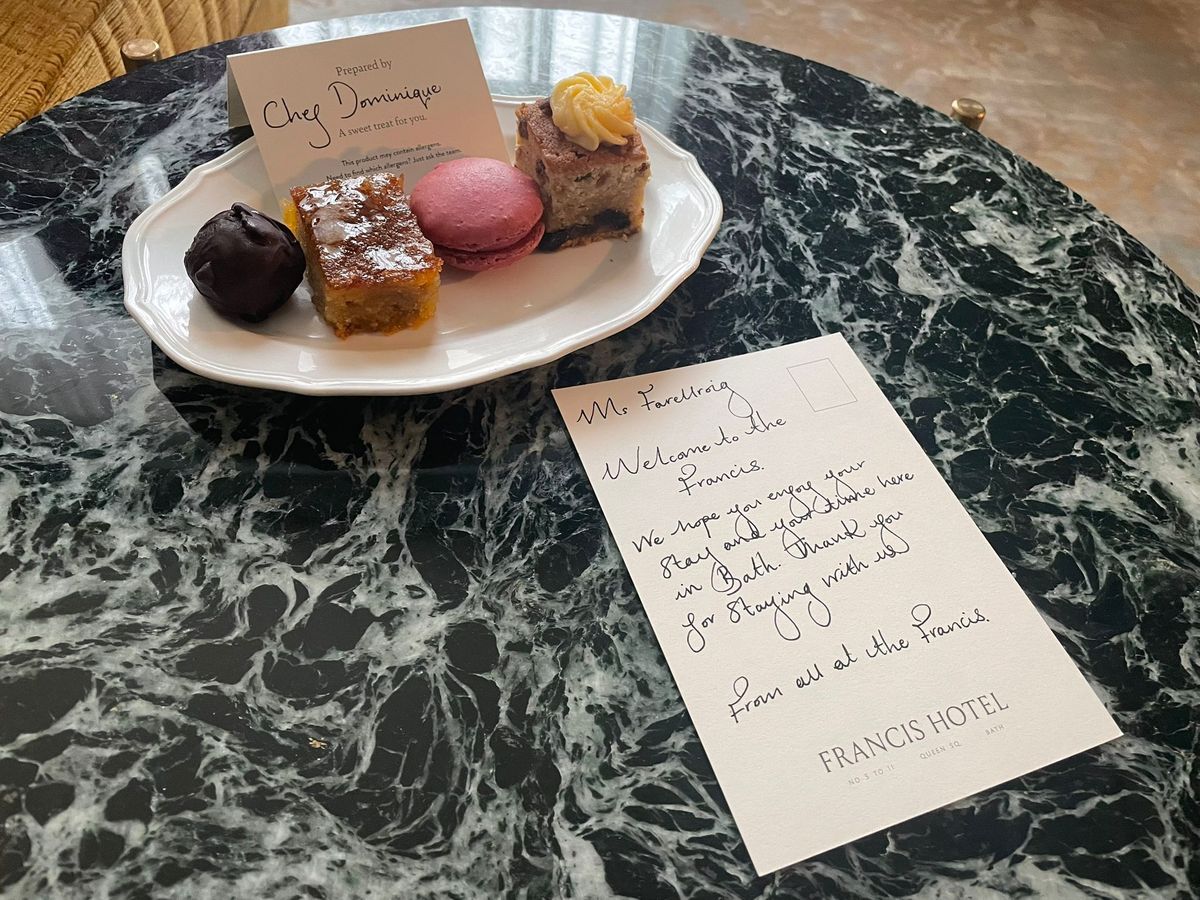 Prepared by
Chef Dominique
A sweet treat for you.
This product may contain allergens.
Need to find which allergens? Just ask the team.
Ms Farellroig
Welcome to the
Francis.
We hope you enjoy your
stay and your time here
in Bath. Thank you
for staying with us
From all at the Francis.
FRANCIS HOTEL
NO. 5 TO 11 QUEEN SQ. BATH